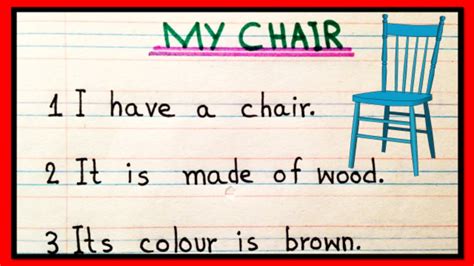 MY CHAIR
1 I have a chair.
2 It is made of wood.
3 Its colour is brown.